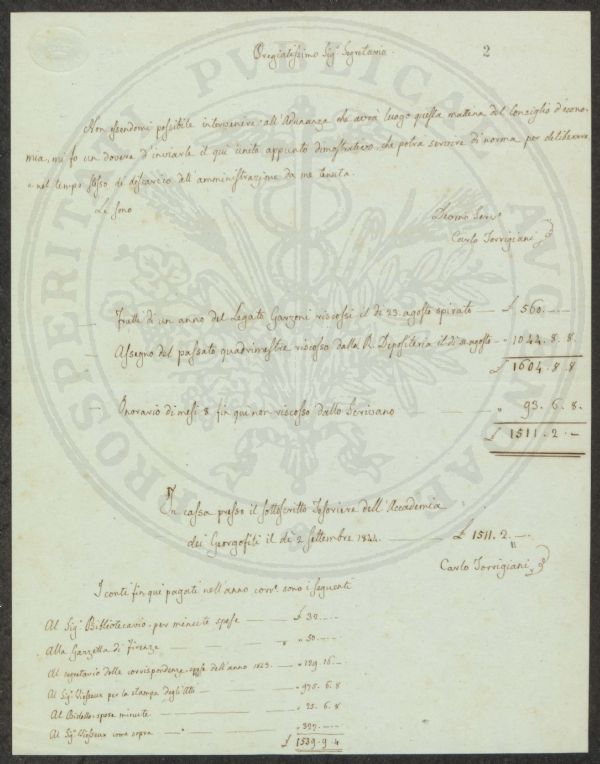 2
Pregiatissimo Sigr. Segretario.
Non essendomi possibile intervenire all'Adunanza che avrà luogo questa mattina del Consiglio d'econo-
mia, mi fo un dovere d'inviarle il qui unito appunto dimostrativo, che potrà servire di norma per deliberare
e nel tempo stesso di discarico dell'amministrazione da me tenuta.
Le sono
Devmo Serv.
Carlo Torrigiani
Frutti di un anno del Legato Garzoni riscossi il dì 23 agosto spirato — £ 560. —
Assegno del passato quadrimestre riscosso dalla R. Depositeria il dì agosto - " 1044. 8. 8.
£ 1604. 8. 8
Onorario di mesi 8 fin qui non riscosso dallo Scrivano — " 93. 6. 8.
£ 1511. 2. —
In cassa presso il sottoscritto Tesoriere dell'Accademia
dei Georgofili il dì 2 Settembre 1844. — £ 1511. 2. —
Carlo Torrigiani
I conti fin qui pagati nell'anno corre. sono i seguenti
Al Sigr. Bibliotecario per minute spese — £ 32. —
Alla Gazzetta di Firenze — " 50. —
Al segretario delle corrispondenze spese dell'anno 1843. — " 129. 16 —
Al Sigr. Vieusseux per la stampa degli Atti — " 975. 6. 8
Al Bidello spese minute — " 25. 6. 8
Al Sigr. Vieusseux come sopra — " 327. —
£ 1539. 9. 4
PROSPERITATI PUBLICAE AUGENDAE